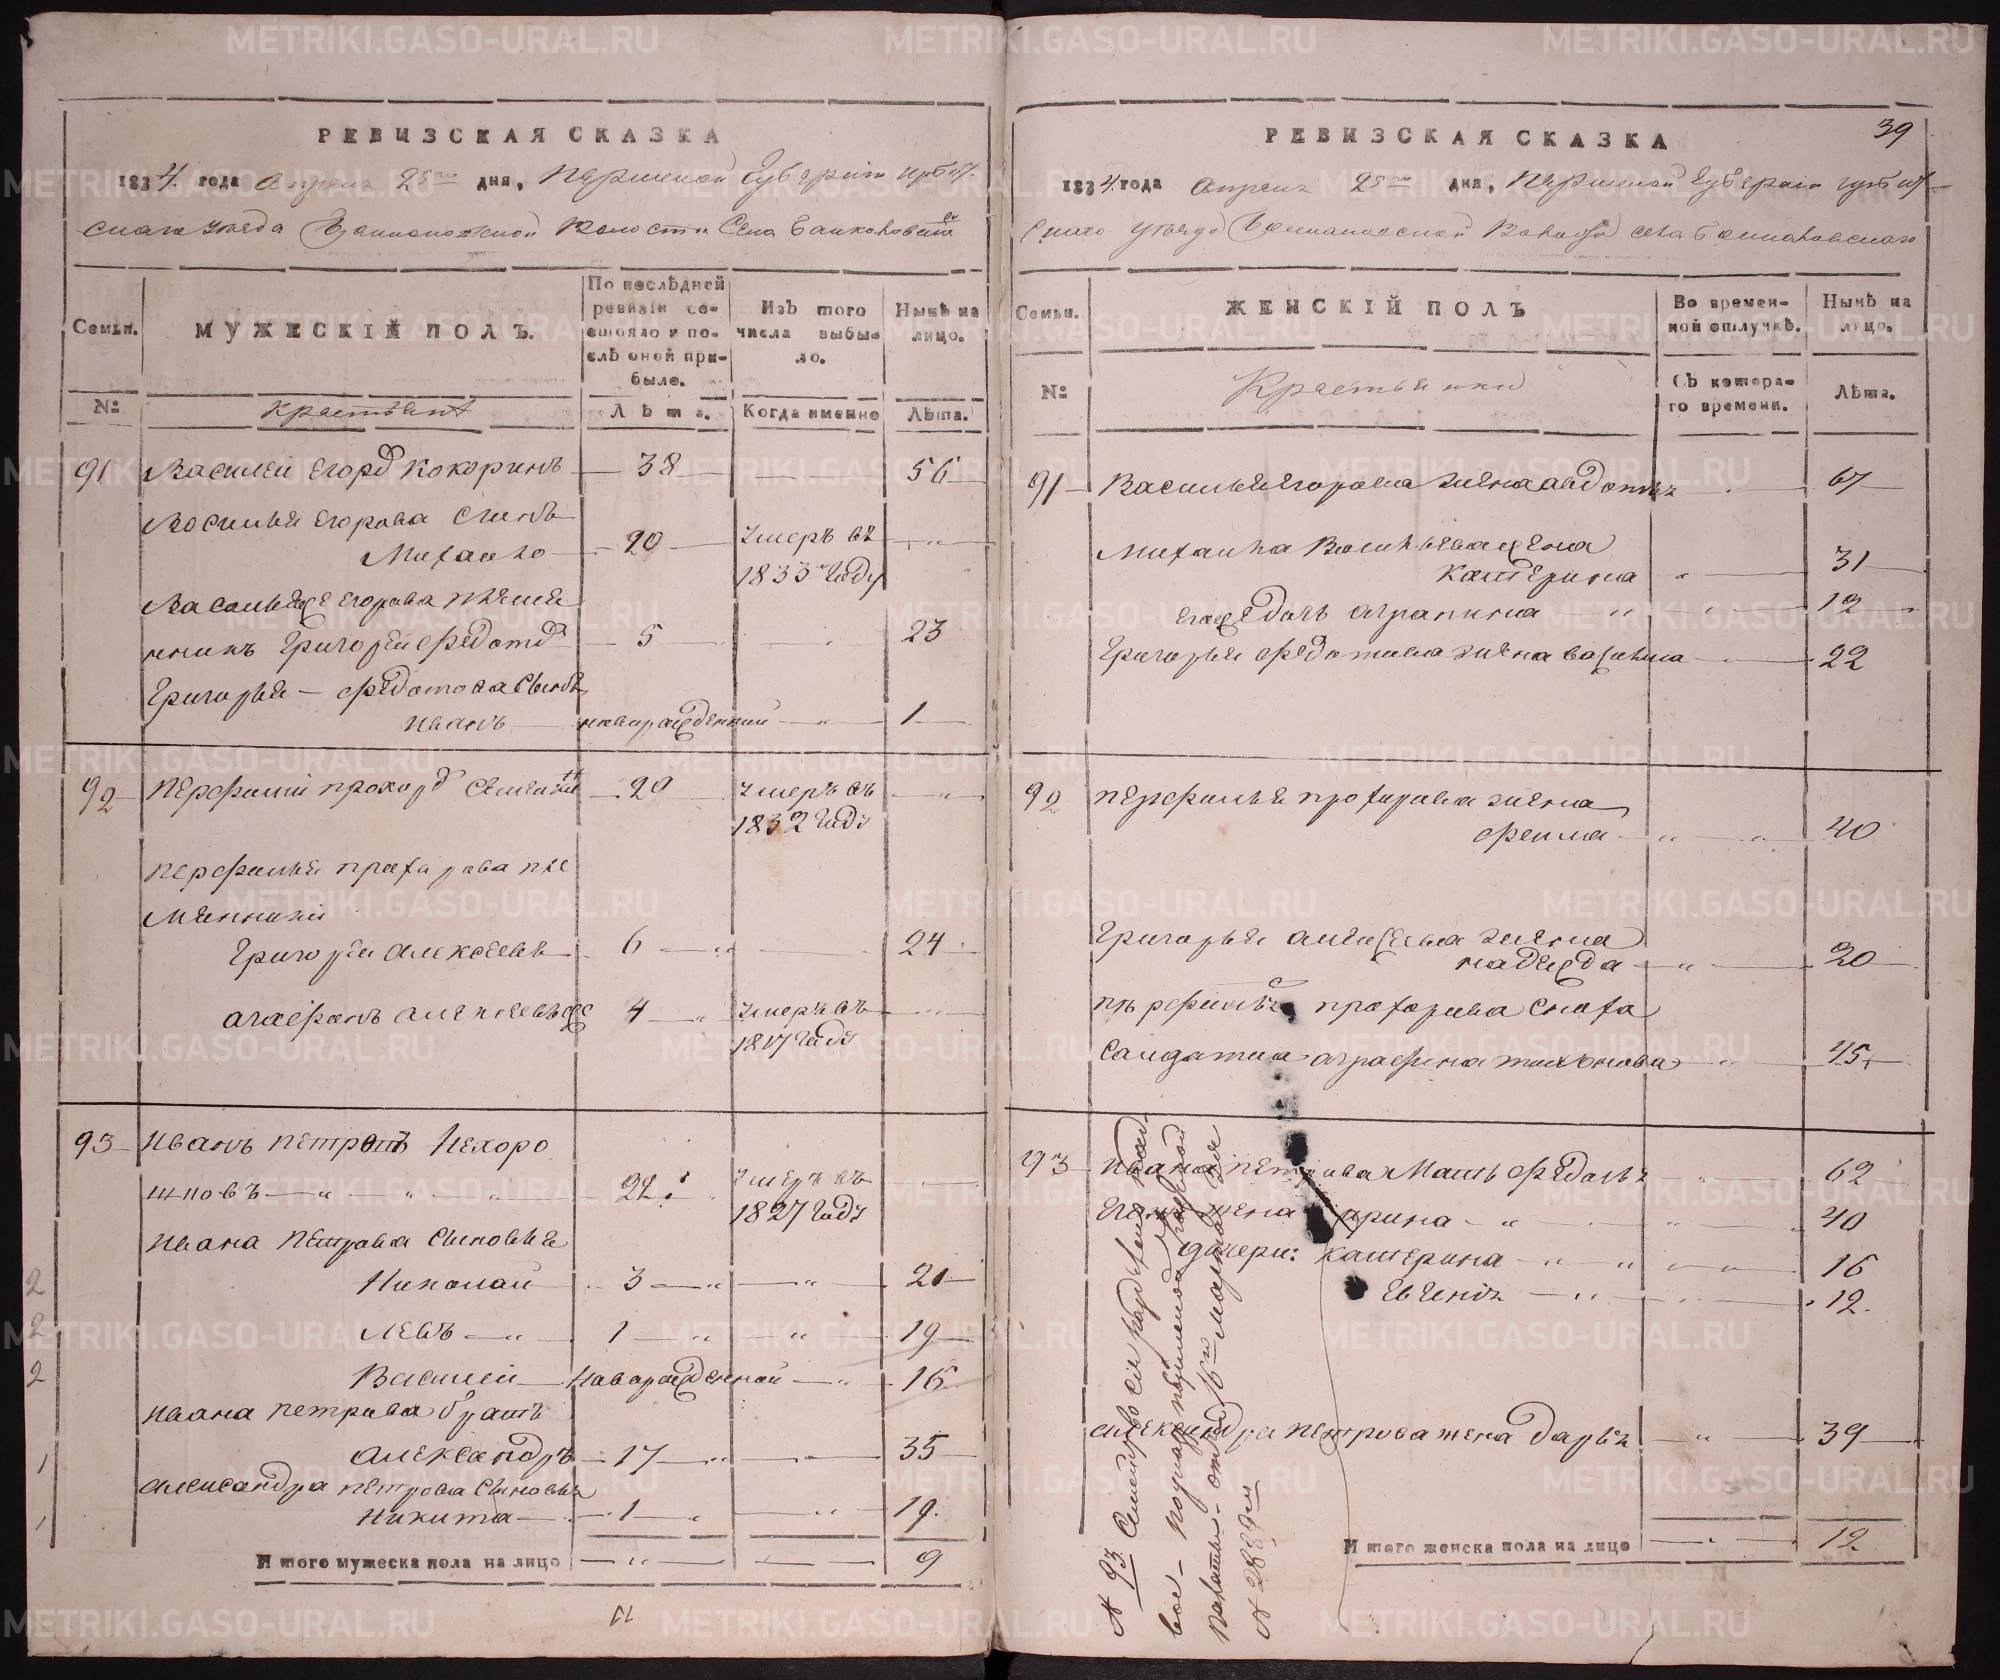 РЕВИЗСКАЯ СКАЗКА
1834. года Апреля 25го дня, Пермской Губернии Ирбит-
скаго уезда Волости Села
Семьи.
МУЖЕСКІЙ ПОЛЪ.
По послѣдней ревизіи состояло и послѣ оной прибыло.
Изъ того числа выбыло.
Нынѣ на лицо.
№
Крестьяне
Лѣта.
Когда именно
Лѣта.
91 Василей Егоров Кокоринъ 38 — 56
Василья Егорова Сынъ
Михайло 20 Умеръ въ 1833 Году
Василья Егорова племянникъ Григорей Федотов 5 — 23
Григорья Федотова Сынъ
Иванъ новорожденный 1
92 Перфилий Прохоров 20 Умеръ въ 1832 Году
Перфилья Прохорова племянники
Григорей Алексеевъ 6 — 24
Агафонъ Алексеевъ же 4 Умеръ въ 1817 Году
93 Иванъ Петровъ Нехорошковъ 22 Умеръ въ 1827 Году
Ивана Петрова Сыновья
Николай 3 — 21
Левъ 1 — 19
Василей Новорожденной — 16
Ивана Петрова братъ
Александръ 17 — 35
Александра Петрова Сыновья
Никита 1 — 19.
И того мужеска пола на лицо 9
39
РЕВИЗСКАЯ СКАЗКА
1834. года Апреля 25го дня, Пермской Губернии Ирбит-
скаго уезда Волости села
Семьи.
ЖЕНСКІЙ ПОЛЪ
Во временной отлучкѣ.
Нынѣ на лицо.
№
Крестьянки
Съ котораго времени.
Лѣта.
91 Василья Егорова жена Авдотья 67
Михаила Васильева жена
Катерина 31
Его же дочь Аграпина 12
Григорья Федотова жена Васильиса 22
92 Перфилья Прохорова жена
Фекла 40
Григорья Алексеева жена
Надежда 20
Перфилья Прохорова Сноха
Салдатка Аграфена Тихонова 45
93 Ивана Петрова Мать Федосья 62
Его жена Ирина 40
дочери: Катерина 16
Евгения 12.
Александра Петрова жена Дарья 39
И того женска пола на лицо 12.
№ 93 Семейство сие
Палаты от 16го Марта
METRIKI.GASO-URAL.RU